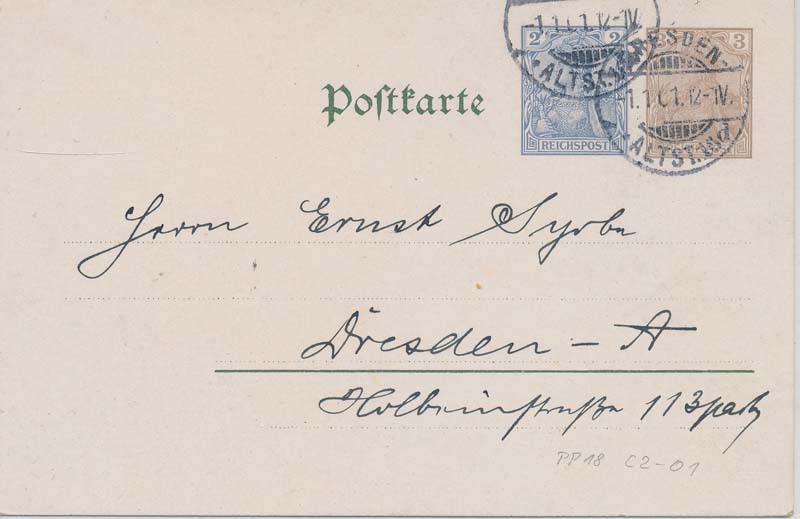 -1.1.01.12-1V.
2 2
ALTST.
REICHSPOST
DRESDEN-
3 3
-1.1.01.12-1V.
ALTST. d
Postkarte
Herrn Ernst Syrbe
Dresden – A
Holbeinstraße 113 part
PP18 C2-01